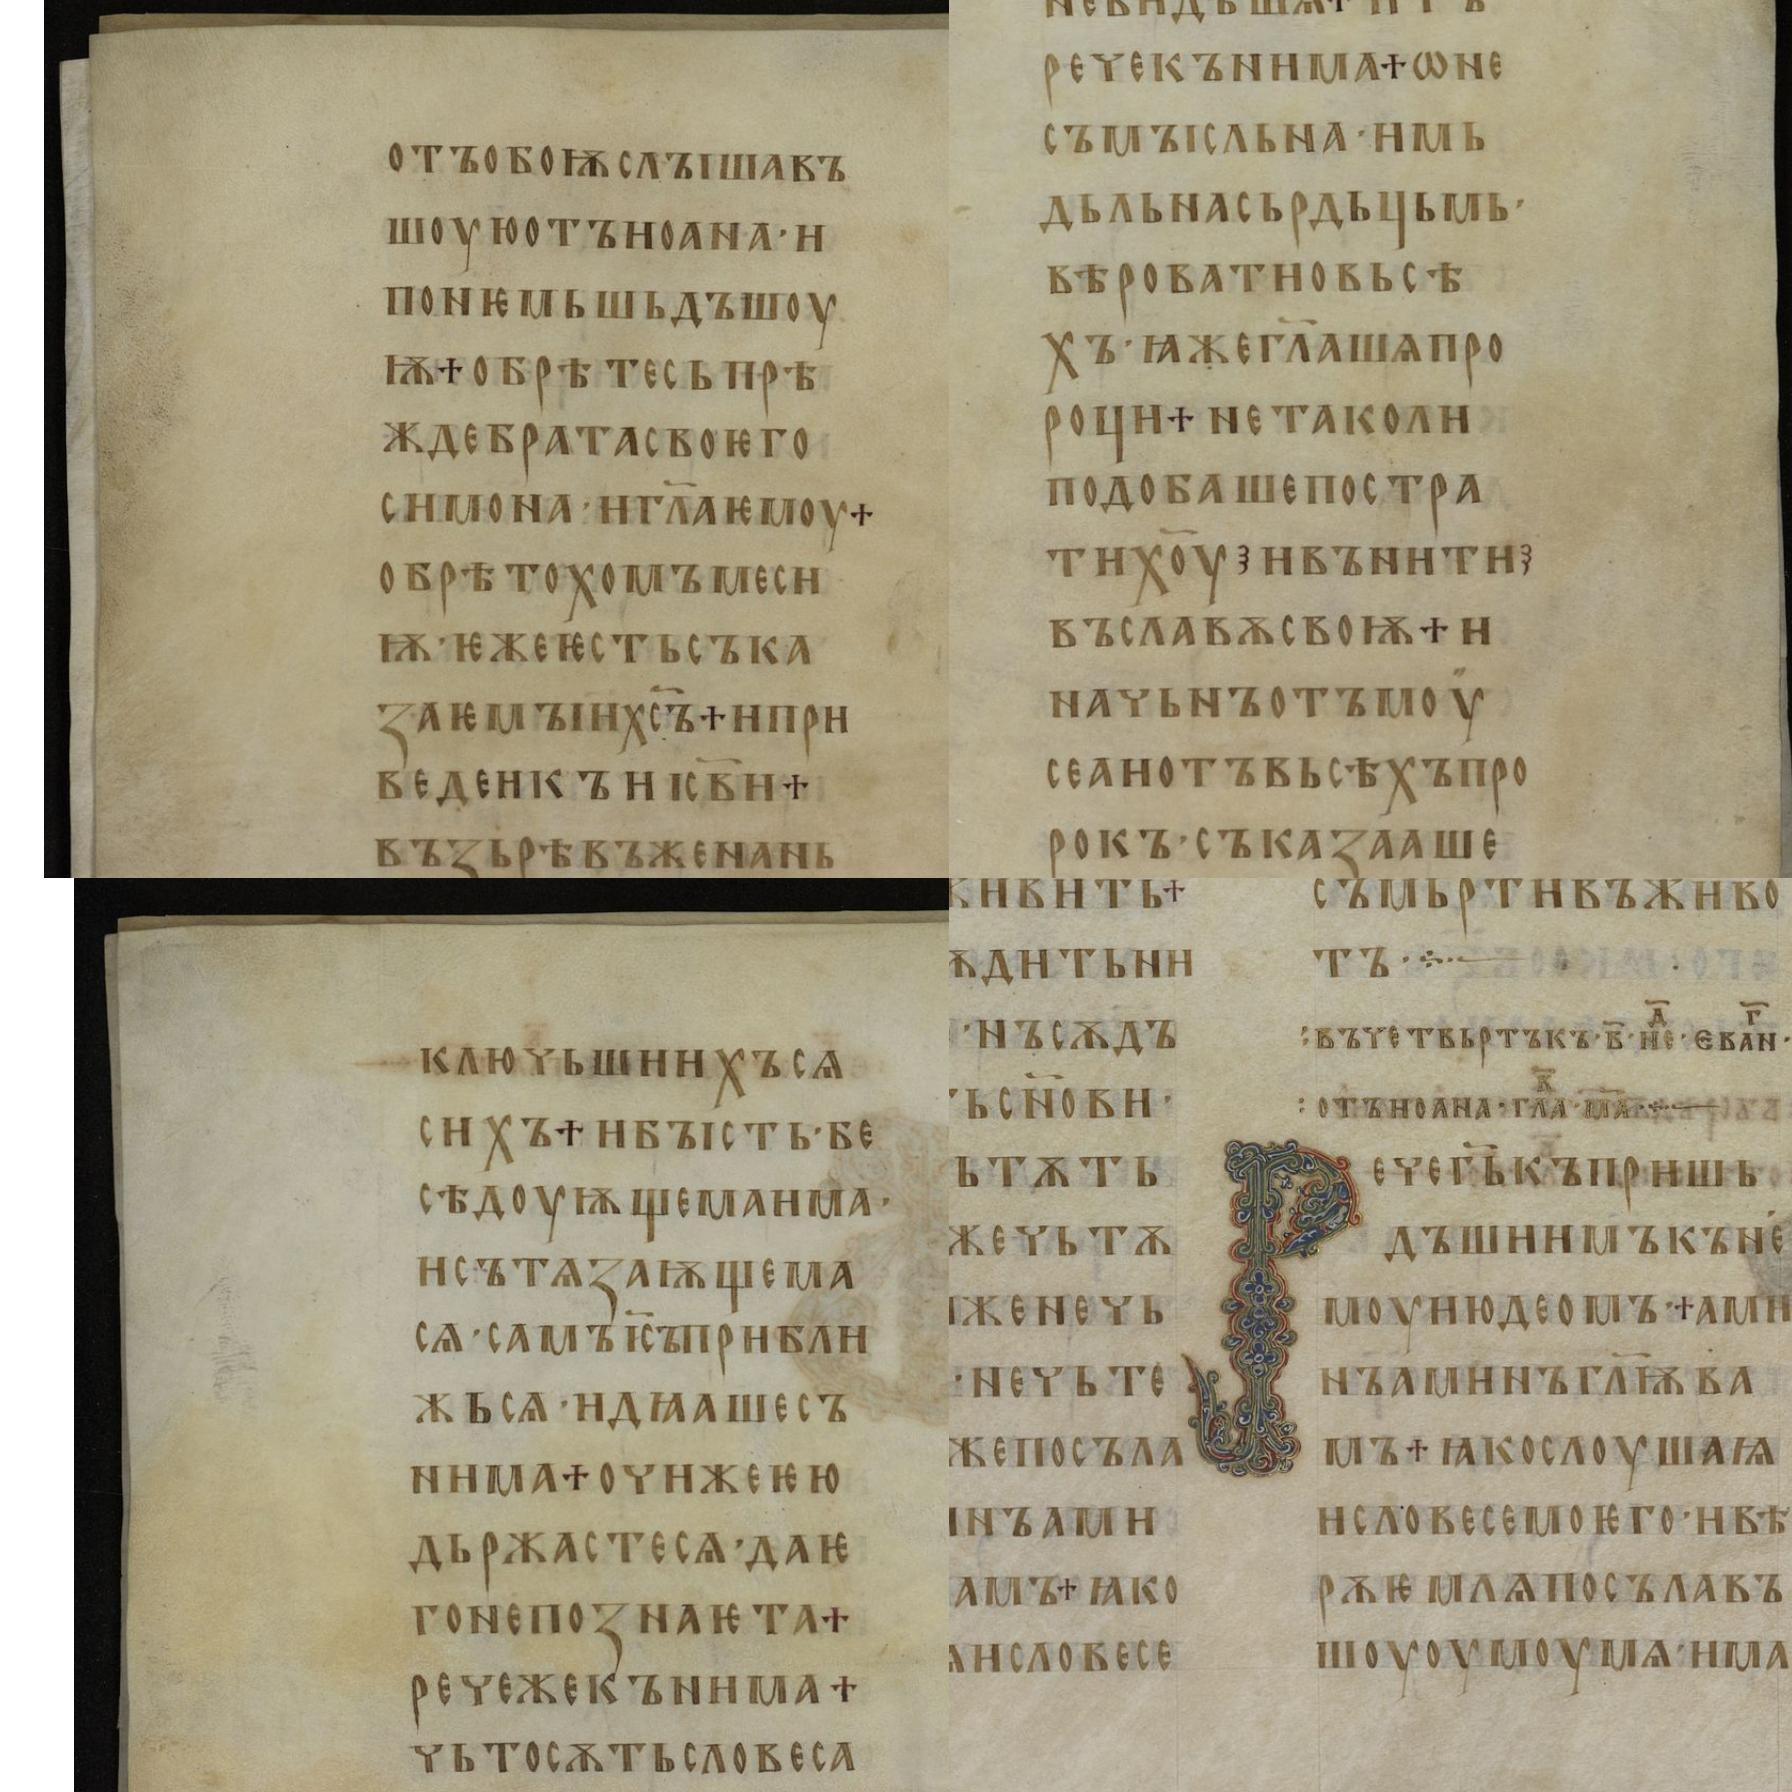 отъобоѭслꙑшавъ
шоуюотъиоана·и
поньѥмьшьдъшоу
ѭ+обрѣтесьпрѣ
ждебратасвоѥго
симона·игл҃аѥмоу+
обрѣтохомъмеси
ѭ·ѥжеѥстьсъка
заѥмꙑихс҃ъ+ипри
ведеикъиісв҃и+
възьрѣвъженань
речекънима+ѡне
съмꙑсльна·имь
дьльнасьрдьцьмь·
вѣроватиовьсѣ
хъ·ꙗжегл҃ашѧпро
роци+нетаколи
подобашепостра
тихо҃у꙳ивънити꙳
въславѫсвоѭ+и
начьнъотъмоѵ
сеаиотъвьсѣхъпро
рокъ·съказааше
ключьшиихъсѧ
сихъ+ибꙑсть·бе
сѣдоуѭщеманма·
исътѧзаѭщема
сѧ·самъіс҃ъприбли
жьсѧ·идꙗашесъ
нима+очижеѥю
дьржастесѧ·даѥ
гонепознаѥта+
речежекънима+
чьтосѫтьсловеса
живить+
ѫдитьни
·нъсѫдъ
ьсн҃ови·
ьтѫть
жечьтѫ
иженечь
·нечьте
жепосъла
инъами
амъ+ꙗко
ѧисловесе
съмьртивъживо
тъ·
:въчетвьртъкъ·в҃·не҃д·еван҃г·
:отъиоана·гла҃к·ма҃·
Речегь҃къпришь
дъшиимъкъне
моуиюдеомъ·+ами
нъаминъгл҃ѭва
мъ+ꙗкослоушаѩ
исловесемоѥго·ивѣ
рѫѥмлѧпосълавъ
шоуоумоумѧ·има